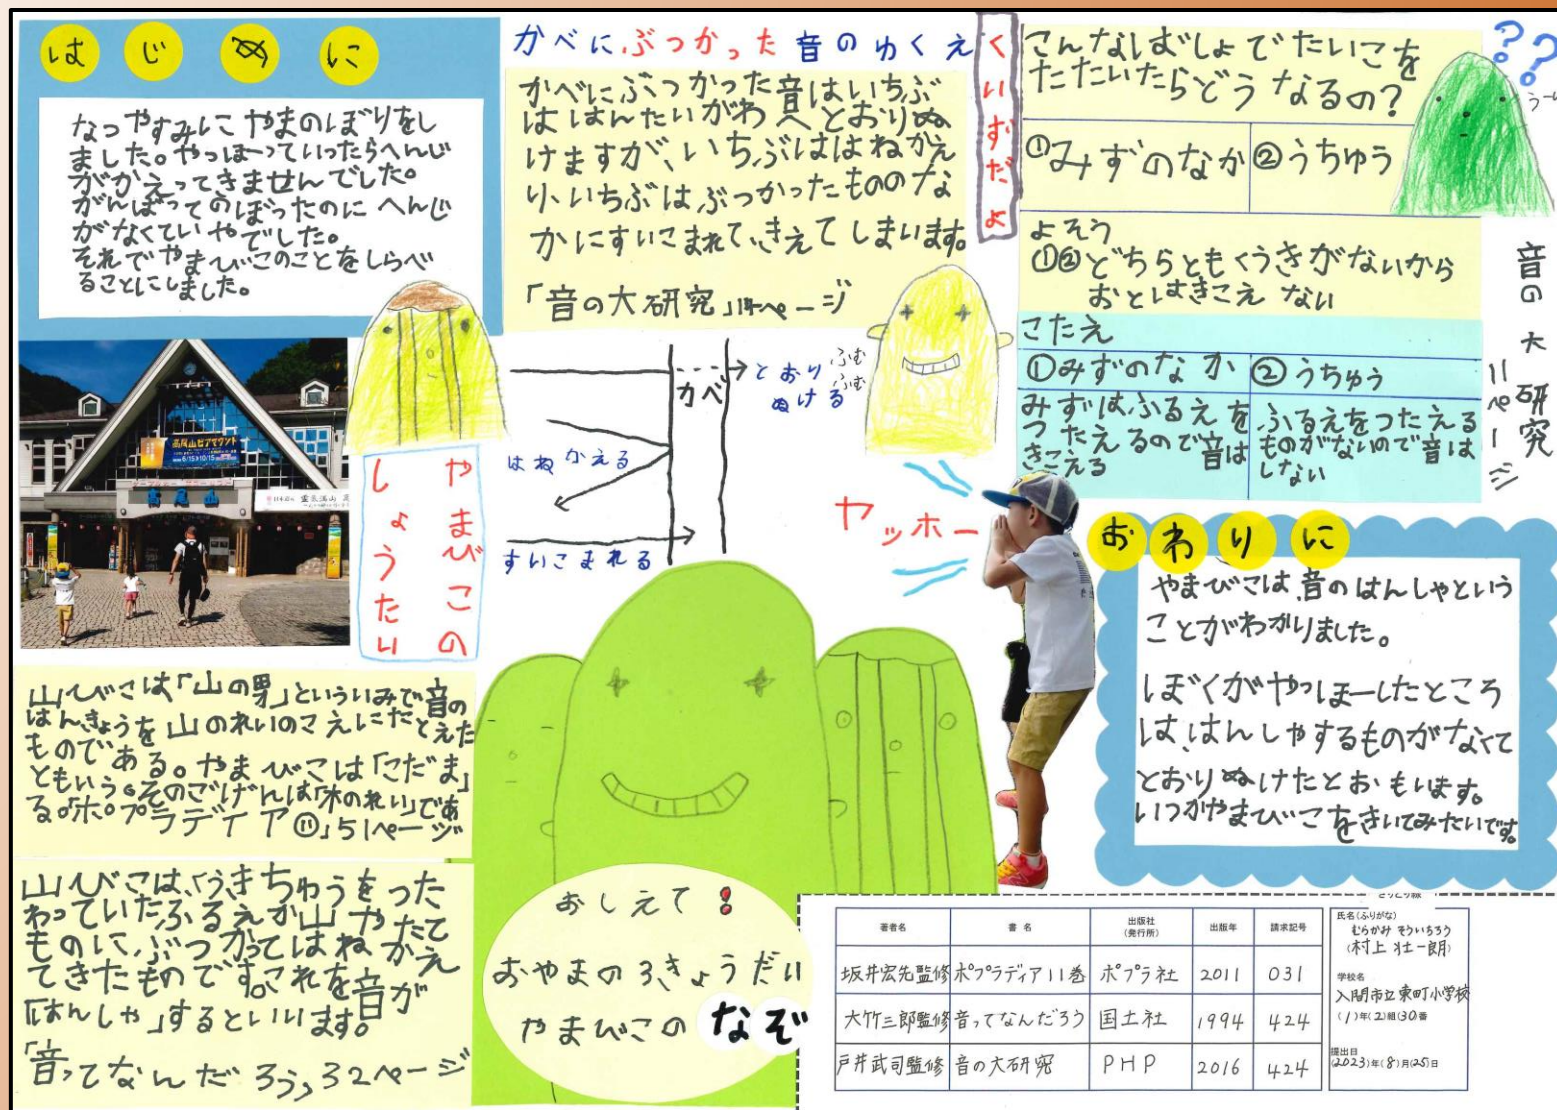 はじめに
なつやすみにやまのぼりをし
ました。やっほーっていったらへんじ
がかえってきませんでした。
がんばってのぼったのにへんじ
がなくていやでした。
それでやまびこのことをしらべ
ることにしました。
高尾山
やまびこの
しょうたい
山びこは「山の男」といういみで音の
はんきょうを山のれいのこえにたとえた
ものである。やまびこは「こだま」
ともいう。そのごげんは「木のれい」であ
る。「ポプラディア⑪」51ページ
山びこは、くうきちゅうをつた
わっていたふるえが山やたて
ものにぶつかってはねかえ
てきたものです。これを音が
「はんしゃ」するといいます。
「音ってなんだろう」32ページ
かべにぶつかった音のゆくえ
かべにぶつかった音はいちぶ
ははんたいがわへとおりぬ
けますが、いちぶははねかえ
り、いちぶはぶつかったもののな
かにすいこまれて、きえてしまいます。
「音の大研究」14ページ
カベ
とおり
ぬける
ふむ
ふむ
はねかえる
すいこまれる
ヤッホー
おしえて!
おやまの3きょうだい
やまびこのなぞ
くいずだよ
こんなばしょでたいこを
たたいたらどうなるの?
??
うーん
①みずのなか ②うちゅう
よそう
①②どちらともくうきがないから
おとはきこえない
こたえ
①みずのなか ②うちゅう
みずはふるえを
つたえるので音は
きこえる
ふるえをつたえる
ものがないので音は
しない
音の大研究
11ページ
おわりに
やまびこは音のはんしゃという
ことがわかりました。
ぼくがやっほーしたところ
は、はんしゃするものがなくて
とおりぬけたとおもいます。
いつかやまびこをきいてみたいです。
著者名 書名 出版社(発行所) 出版年 請求記号
坂井宏先監修 ポプラディア11巻 ポプラ社 2011 031
大竹三郎監修 音ってなんだろう 国土社 1994 424
戸井武司監修 音の大研究 PHP 2016 424
きりとり線
氏名(ふりがな)
むらかみ そういちろう
(村上壮一朗)
学校名
入間市立東町小学校
(1)年(2)組(30)番
提出日
(2023)年(8)月(25)日